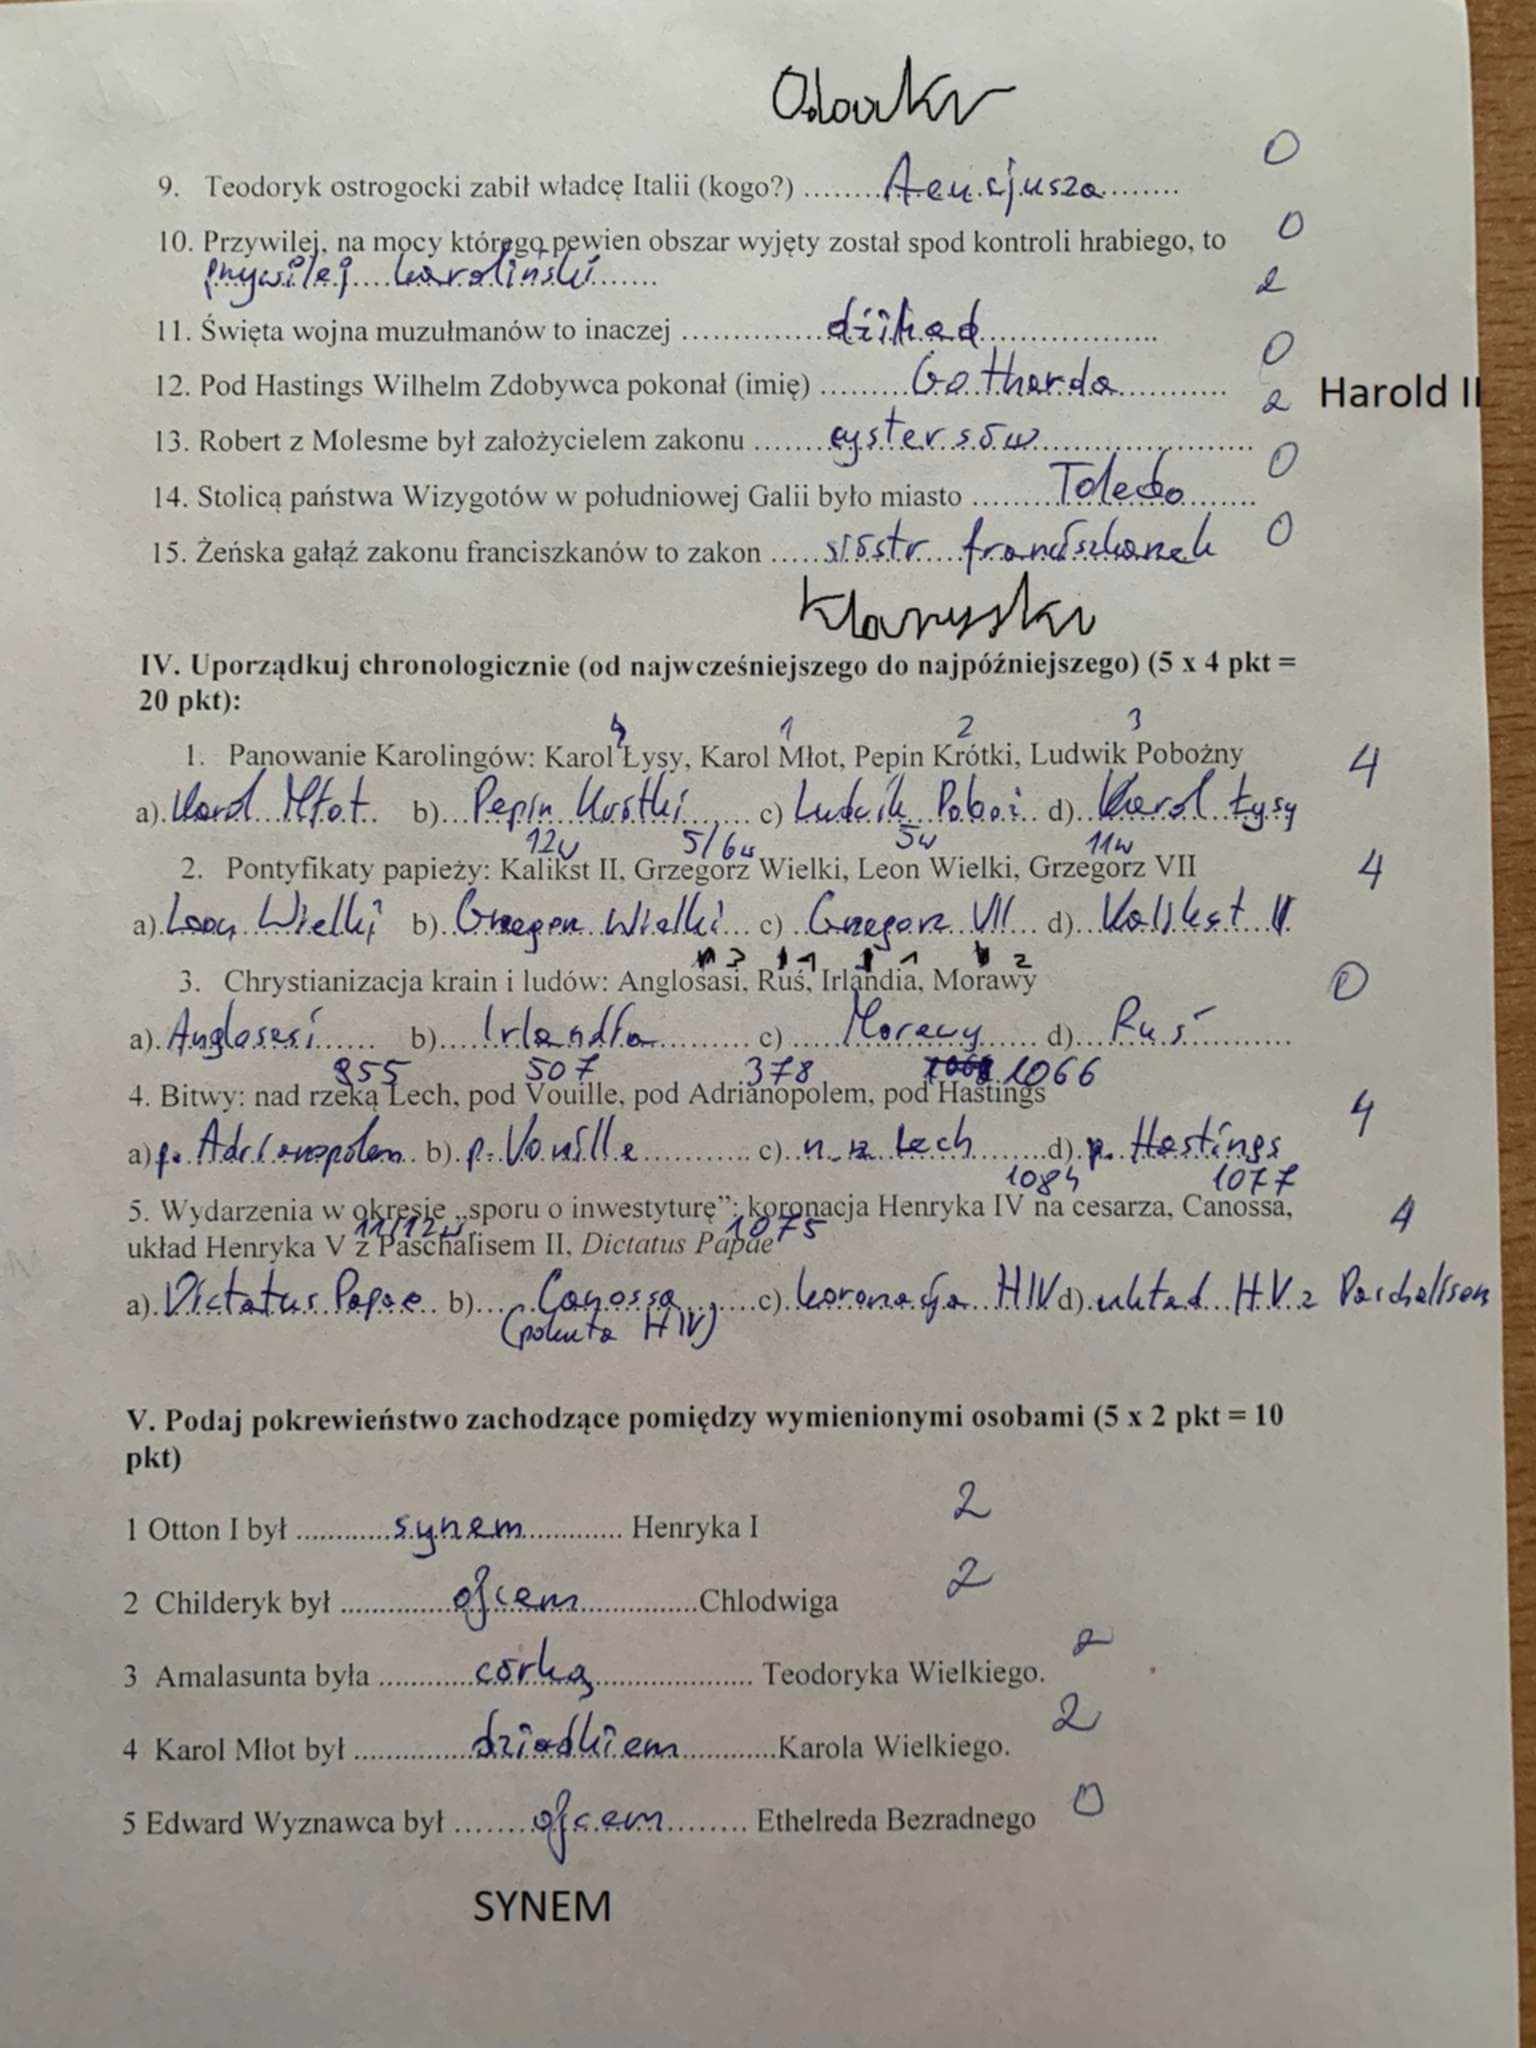 Odoakr
0
9. Teodoryk ostrogocki zabił władcę Italii (kogo?) ........Aeucjusza........
10. Przywilej, na mocy którego pewien obszar wyjęty został spod kontroli hrabiego, to 0
przywilej....karoliński.......
11. Święta wojna muzułmanów to inaczej ..............dżihad.................. 2
12. Pod Hastings Wilhelm Zdobywca pokonał (imię) .........Gotharda............ 0
Harold II
13. Robert z Molesme był założycielem zakonu .......cystersów..................... 2
14. Stolicą państwa Wizygotów w południowej Galii było miasto .........Toledo........ 0
15. Żeńska gałąź zakonu franciszkanów to zakon .....sióstr....franciszkanek 0
Klaryski
IV. Uporządkuj chronologicznie (od najwcześniejszego do najpóźniejszego) (5 x 4 pkt =
20 pkt):
4 1 2 3
1. Panowanie Karolingów: Karol Łysy, Karol Młot, Pepin Krótki, Ludwik Pobożny 4
a).Karol...Młot.. b)...Pepin..Krótki...... c) Ludwik..Poboż.. d)..Karol Łysy
12w 5/6w 5w 11w
2. Pontyfikaty papieży: Kalikst II, Grzegorz Wielki, Leon Wielki, Grzegorz VII 4
a).Leon..Wielki b)..Grzegorz..Wielki... c) ..Grzegorz..VII... d)...Kalikst..II.
3 1 2
3. Chrystianizacja krain i ludów: Anglosasi, Ruś, Irlandia, Morawy 0
a).Anglosasi...... b).....Irlandia.......... c) .....Morawy...... d)....Ruś...........
955 507 378 1066
4. Bitwy: nad rzeką Lech, pod Vouille, pod Adrianopolem, pod Hastings 4
a)p. Adrianopolem.. b).p. Vouille........... c)..n. rz. Lech.......d).p. Hastings
1084 1077
5. Wydarzenia w okresie „sporu o inwestyturę”: koronacja Henryka IV na cesarza, Canossa, 4
11/12w 1075
układ Henryka V z Paschalisem II, Dictatus Papae
a).Dictatus.Papae.. b)....Canossa......c).koronacja..HIV d).układ...H.V. z Paschalisem
(pokuta HIV)
V. Podaj pokrewieństwo zachodzące pomiędzy wymienionymi osobami (5 x 2 pkt = 10
pkt)
1 Otton I był ............synem............. Henryka I 2
2 Childeryk był ..............ojcem................Chlodwiga 2
3 Amalasunta była ............córką.................... Teodoryka Wielkiego. 2
4 Karol Młot był ...............dziadkiem............Karola Wielkiego. 2
5 Edward Wyznawca był ........ojcem......... Ethelreda Bezradnego 0
SYNEM